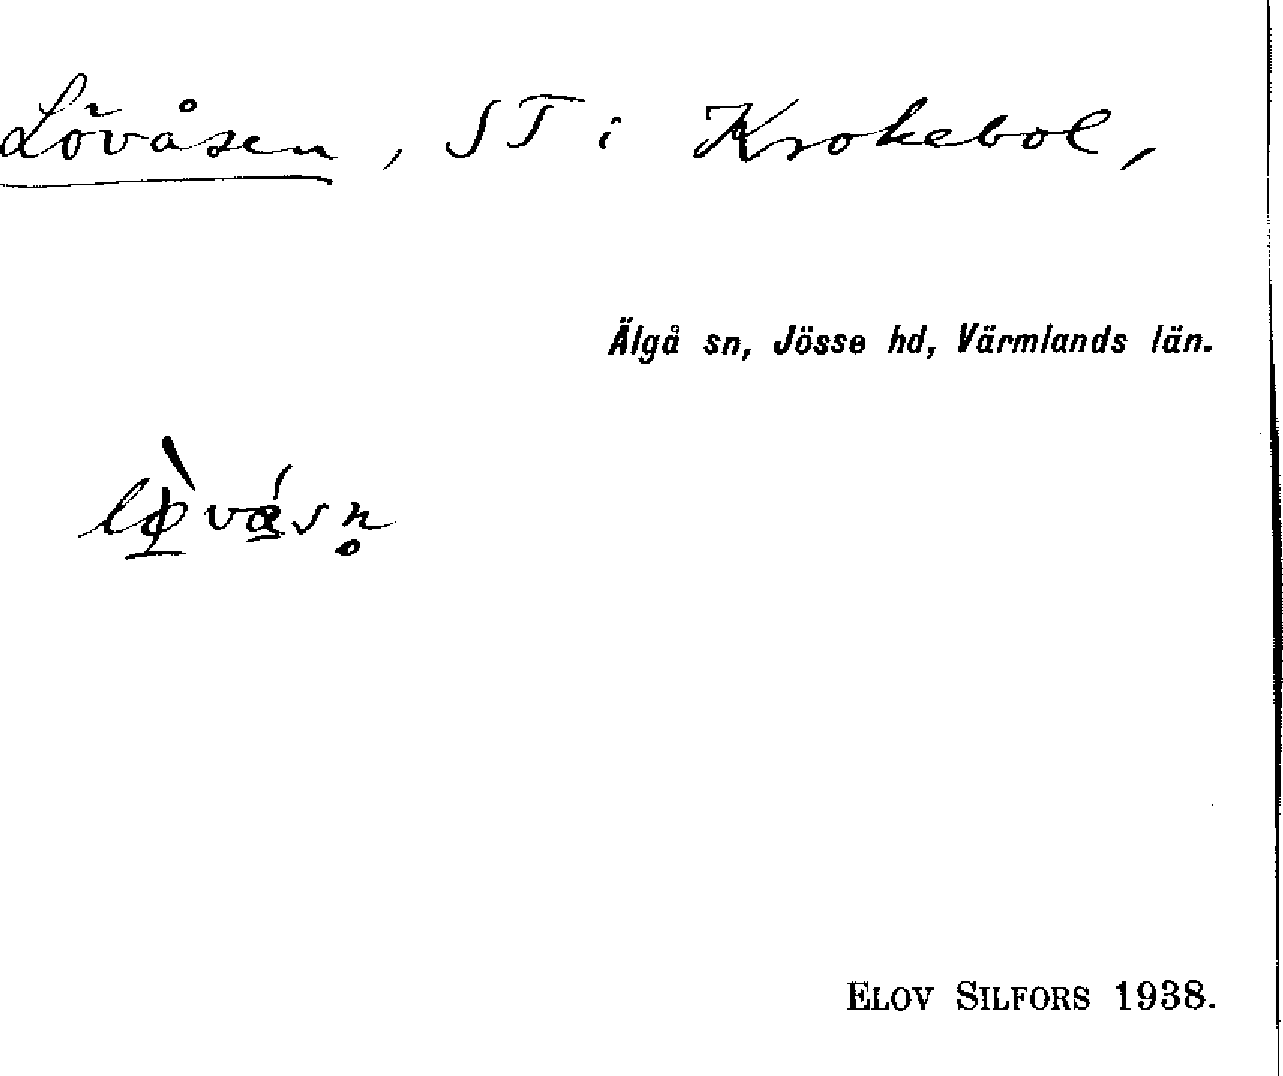 Lövåsen, ST i Krokebol,
Älgå sn, Jösse hd, Värmlands län.
ELOV SILFORS 1938.